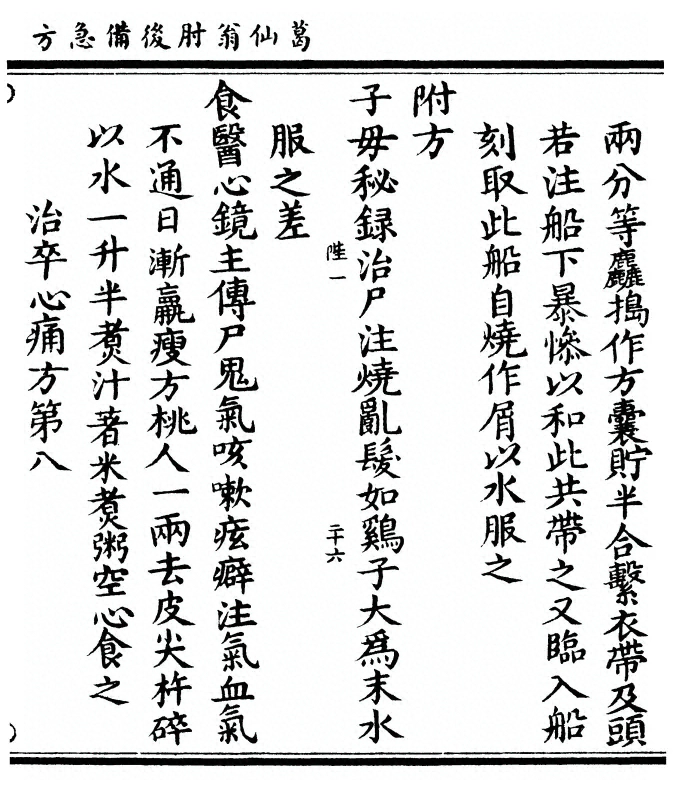 葛仙翁肘後備急方
兩分等麤搗作方囊貯半合繫衣帶及頭
若注船下暴慘以和此共帶之又臨入船
刻取此船自燒作屑以水服之
附方
子毋秘録治尸注燒亂髮如鷄子大爲末水
服之差
陛一
二十六
食醫心鏡主傳尸鬼氣咳嗽痃癖注氣血氣
不通日漸羸瘦方桃人一兩去皮尖杵碎
以水一升半煮汁著米煮粥空心食之
治卒心痛方第八